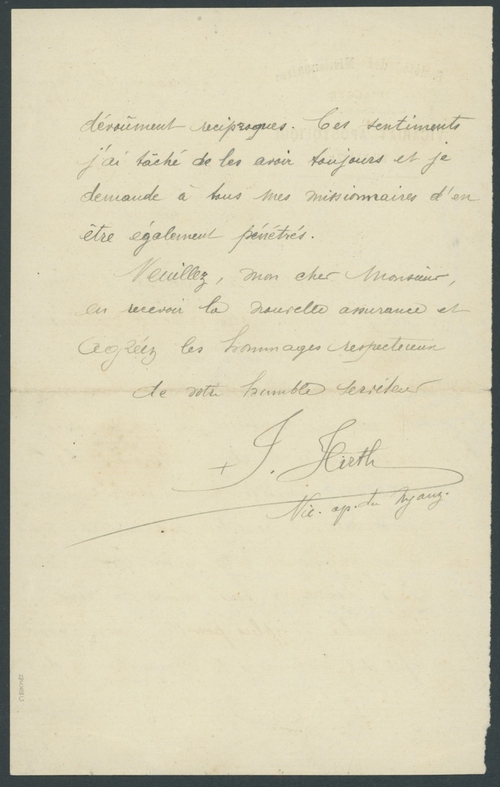 dévoûment reciproques. Ces sentiments
j'ai tâché de les avoir toujours et je
demande à tous mes missionnaires d'en
être également pénétrés.
Veuillez, mon cher Monsieur,
en recevoir la nouvelle assurance et
agréez les hommages respectueux
de votre humble serviteur
+ J. Hirth
Vic. ap. du Nyanz.